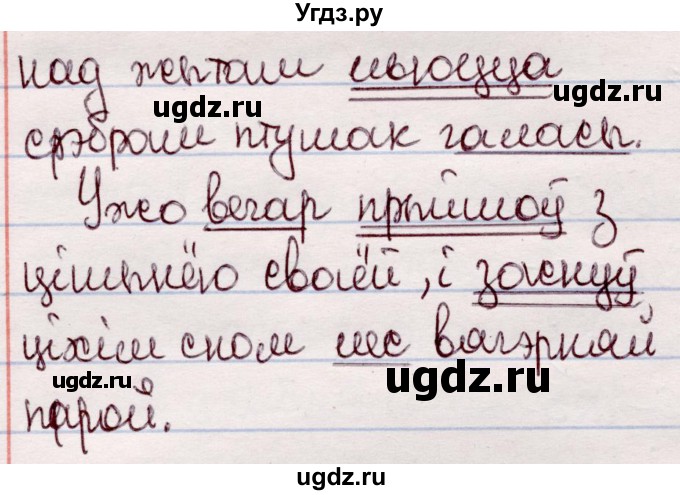 Угдз.ру
над жытам льюцца
ugdz.ru ugdz.ru
срэбрам птушак галасы.
Ужо вечар прыйшоў з
цішынёю сваёй, і заснуў
ціхім сном лес вячэрняй
ugdz.ru ugdz.ru
парой.
ugdz.ru